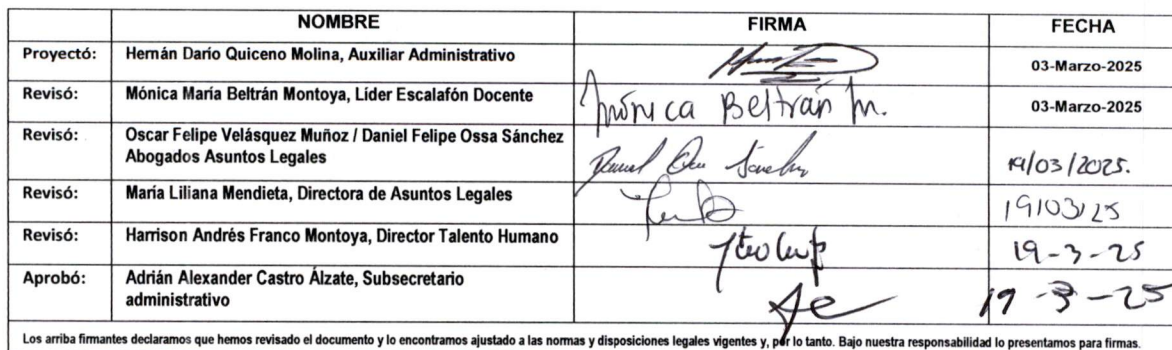 NOMBRE FIRMA FECHA
Proyectó: Hernán Darío Quiceno Molina, Auxiliar Administrativo 03-Marzo-2025
Revisó: Mónica María Beltrán Montoya, Líder Escalafón Docente Mónica Beltrán m. 03-Marzo-2025
Revisó: Oscar Felipe Velásquez Muñoz / Daniel Felipe Ossa Sánchez
Abogados Asuntos Legales Daniel Ossa Sánchez 19/03/2025.
Revisó: María Liliana Mendieta, Directora de Asuntos Legales 19/03/25
Revisó: Harrison Andrés Franco Montoya, Director Talento Humano 19-3-25
Aprobó: Adrián Alexander Castro Álzate, Subsecretario
administrativo 19-3-25
Los arriba firmantes declaramos que hemos revisado el documento y lo encontramos ajustado a las normas y disposiciones legales vigentes y, por lo tanto. Bajo nuestra responsabilidad lo presentamos para firmas.